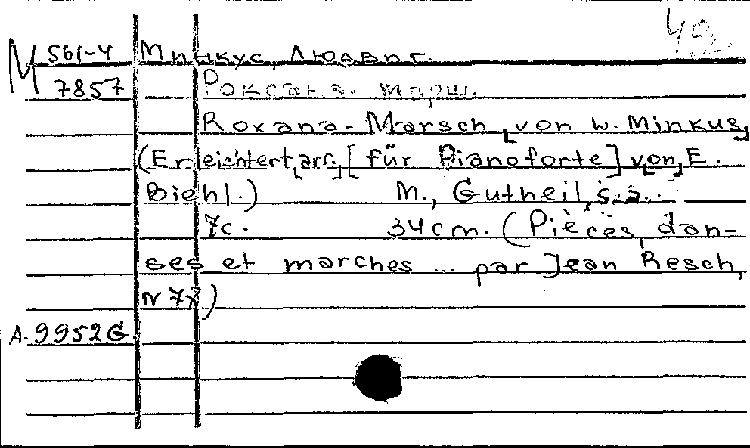 М 561-4 Минкус, Людвиг.
7857 Роксана. Марш.
Roxana-Marsch, von w. Minkus,
(Erleichtert, arr. [für Pianoforte] von E.
Biehl.) M., Gutheil, s.a.
7c. 34cm. (Pièces, dan-
ses et marches ... par Jean Resch,
A.9952G